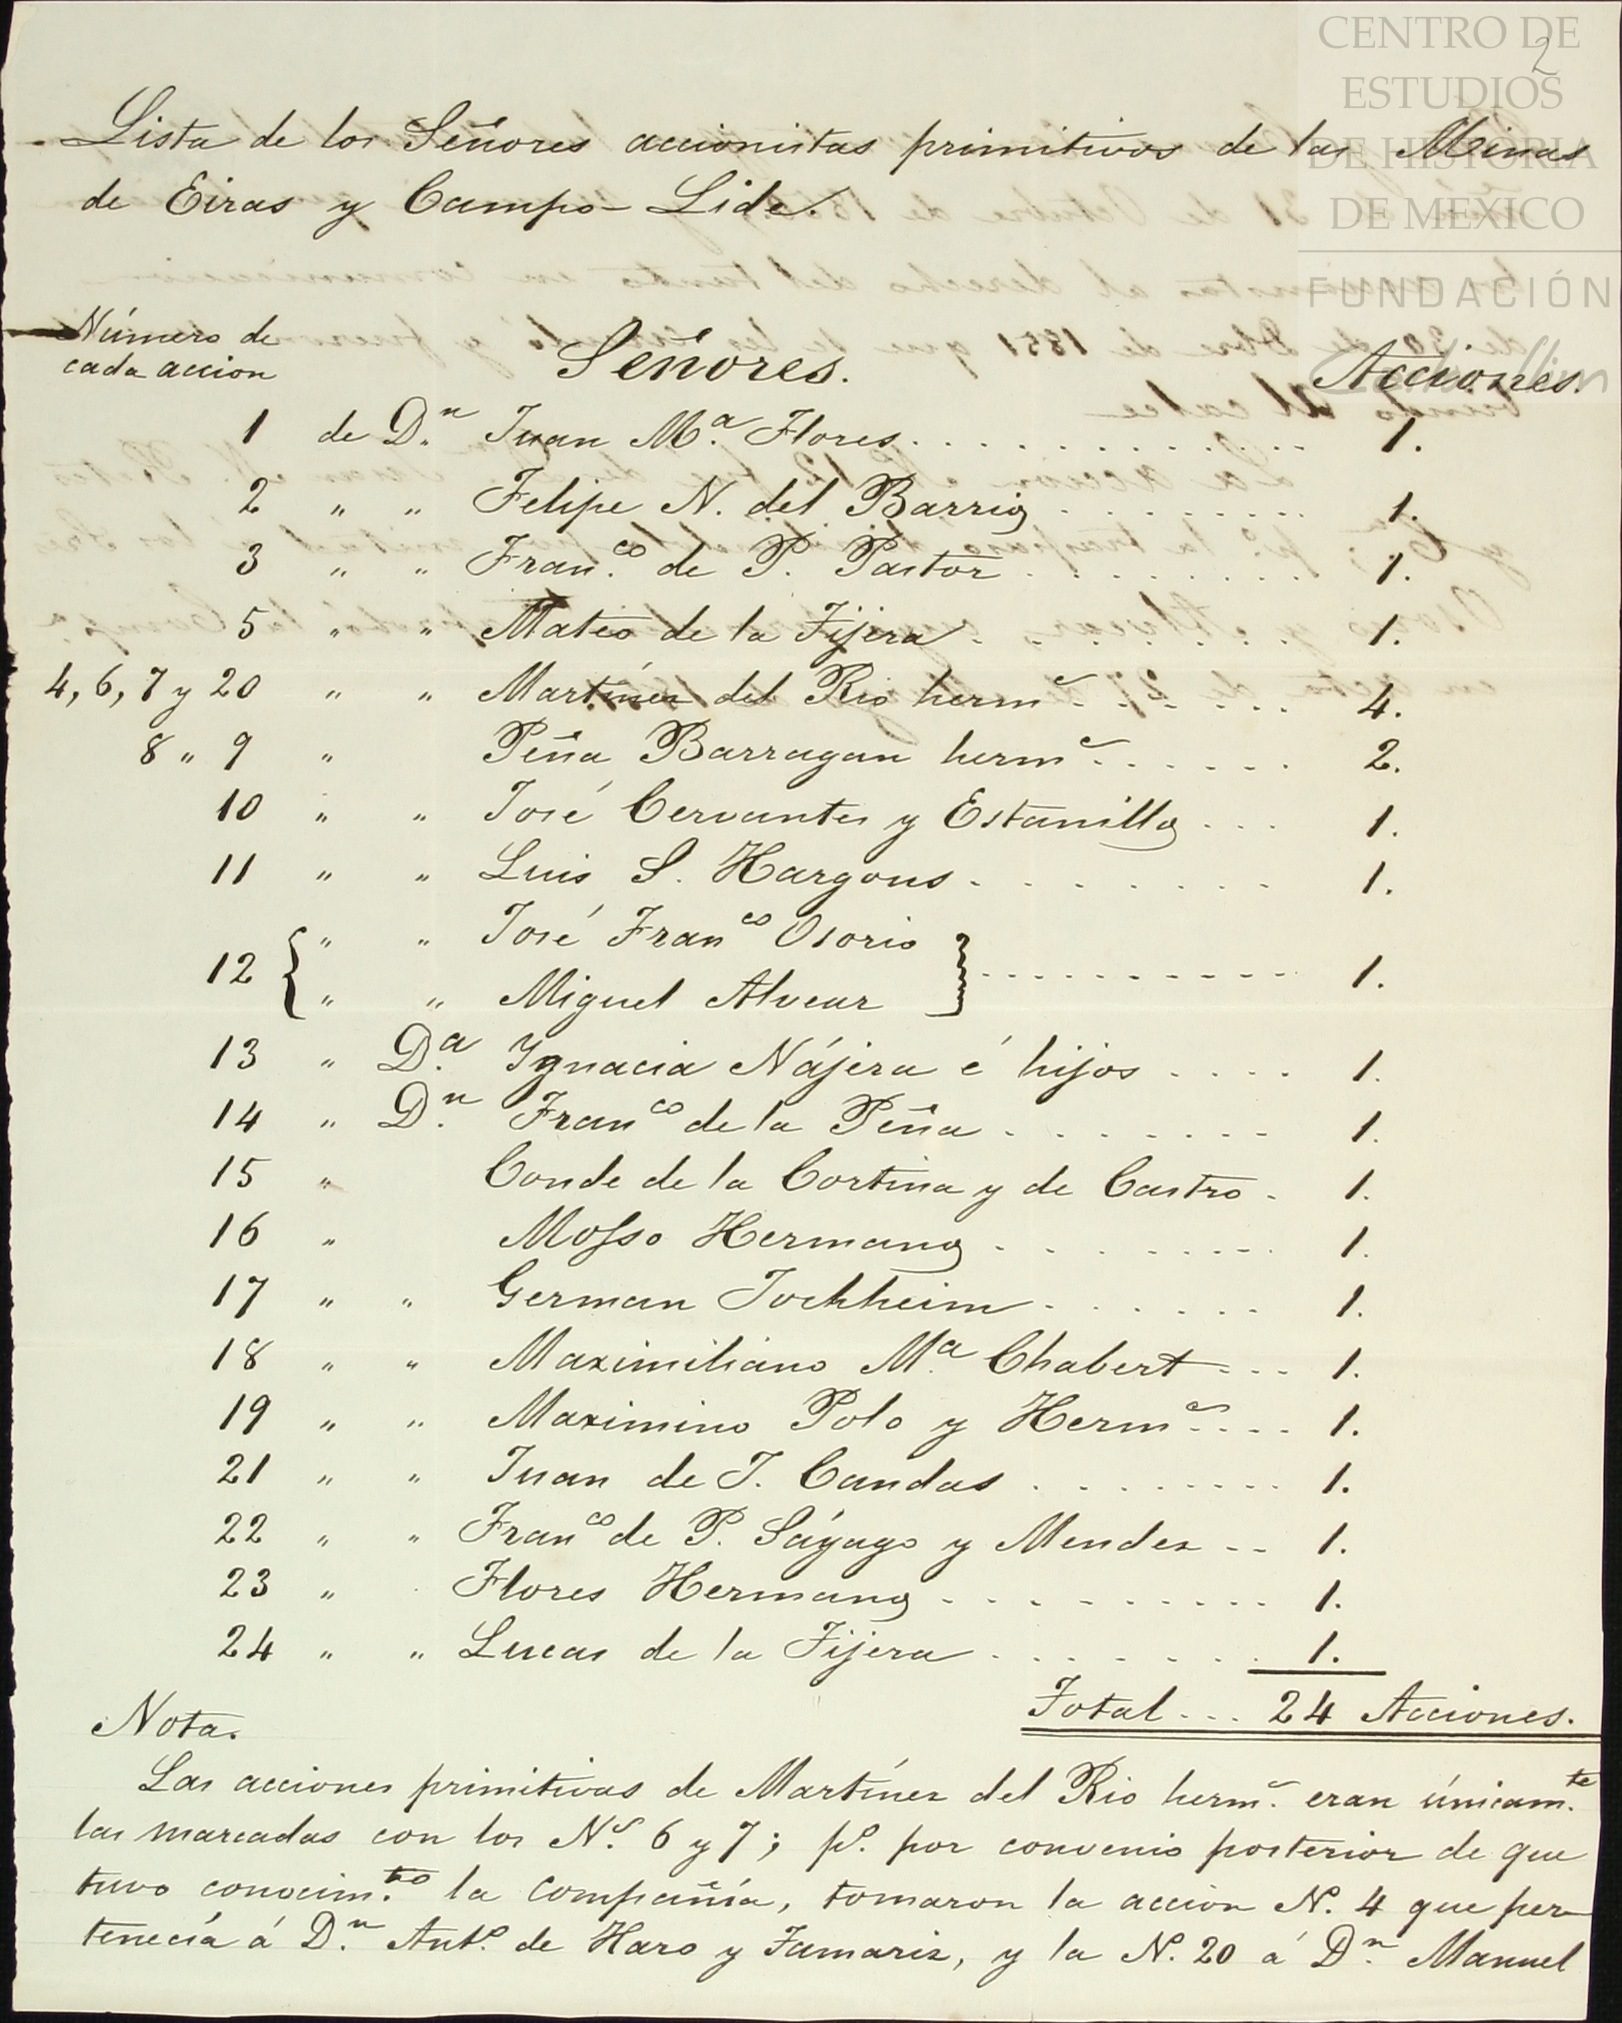 CENTRO DE
ESTUDIOS
DE HISTORIA
DE MEXICO
FUNDACIÓN
2
Lista de los Señores accionistas primitivos de las Minas
de Eiras y Campo-Lide.
Número de
cada accion
Señores.
Acciones.
1 de D.n Juan M.a Flores. . . . . . . . . . . . 1.
2 " " Felipe N. del Barrio . . . . . . . . . 1.
3 " " Fran.co de P. Pastor . . . . . . . . . 1.
5 " " Mateo de la Tijera . . . . . . . . . 1.
4, 6, 7 y 20 " " Martínez del Rio herms . . . . . . 4.
8 " 9 " Peña Barragan herms . . . . . . 2.
10 " " José Cervantes y Estanillo . . . 1.
11 " " Luis S. Hargous . . . . . . . . 1.
" " José Franco Osorio
12 { } - - - - - - - - - - 1.
" " Miguel Alvear
13 " D.a Ignacia Nájera é hijos . . . . 1.
14 " D.n Franco de la Peña . . . . . . . . 1.
15 " Conde de la Cortina y de Castro . 1.
16 " Mosso Hermanos . . . . . . . . . 1.
17 " " German Jockheim . . . . . . 1.
18 " " Maximiliano Ma Chabert . . . 1.
19 " " Maximino Polo y Herms . . . . 1.
21 " " Juan de J. Candas . . . . . . . . 1.
22 " " Franco de P. Sáyago y Mendez - - 1.
23 " Flores Hermanos . . . . . . . . . . 1.
24 " " Lucas de la Tijera . . . . . . . . 1.
Total . . . 24 Acciones.
Nota.
Las acciones primitivas de Martínez del Rio herms. eran únicam.te
las marcadas con los N.s 6 y 7; po. por convenio posterior de que
tuvo conocim.to la compañía, tomaron la accion N. 4 que per-
tenecía á D.n Anto. de Haro y Tamariz, y la N. 20 á D.n Manuel